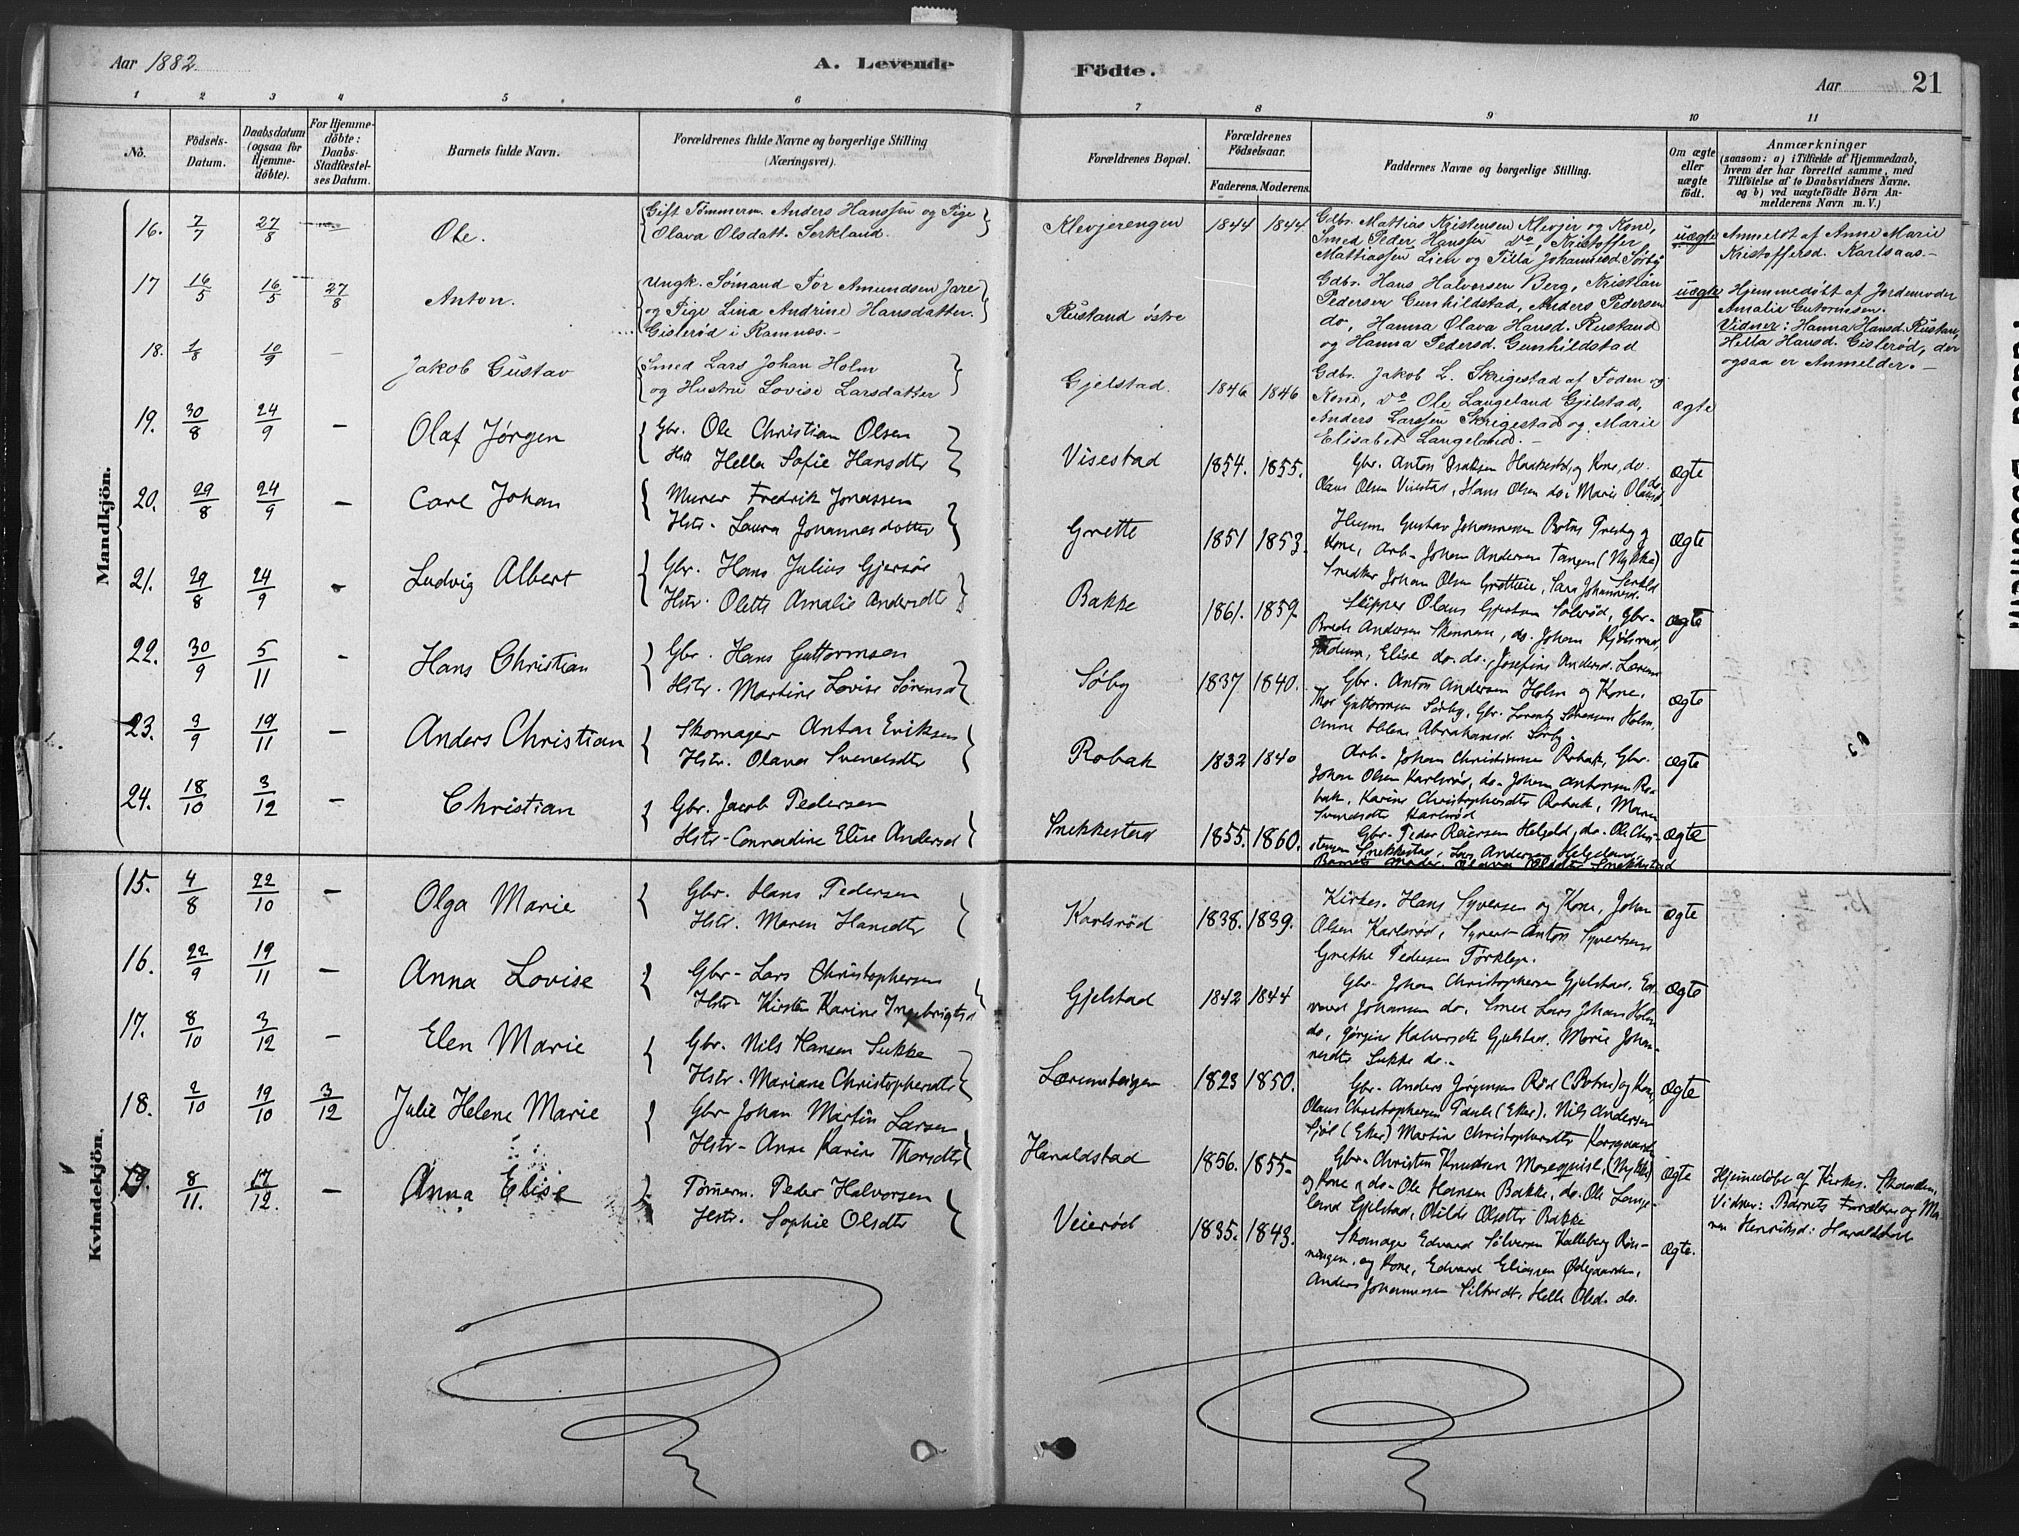 Aar 1882
A. Levende Födte.
Aar
21
1 2 3 4 5 6 7 8 9 10 11
No.
Födsels-Datum.
Daabsdatum (ogsaa for Hjemmedöbte).
For Hjemmedöbte: Daabs-Stadfæstelses Datum.
Barnets fulde Navn.
Forældrenes fulde Navne og borgerlige Stilling (Næringsvei).
Forældrenes Bopæl.
Forældrenes Födselsaar.
Faderens. Moderens.
Faddernes Navne og borgerlige Stilling.
Om ægte eller uægte födt.
Anmærkninger
(saasom: a) i Tilfælde af Hjemmedaab,
hvem der har forrettet samme, med
Tilföielse af to Daabsvidners Navne,
og b) ved uægtefödte Börn An-
melderens Navn m. V.)
Mandkjön.
16. 7/7 27/8 — Ole.
Gift Tømmerm. Anders Hanssen og Pige
Olava Olsdatt. Serkland.
Klevjerengen 1844 1844
Gdbr. Mathias Kristensen Klevjer og Kone,
Smed Peder Hanssen do, Kristoffer
Mathiassen Lien og Tilla Johannesd. Sørby
uægte
Anmeldt af Anne Marie
Kristoffersd. Karlsaas.-
17 16/5 16/5 27/8 Anton.
Ungk. Sømand Tor Amundsen Jare
og Pige Lina Andrine Hansdatter
Gislerød i Ramnes.-
Rustand østre
Gdbr. Hans Halvorsen Berg, Kristian
Pedersen Gunhildstad, Anders Pedersen
do, Hanna Olava Hansd. Rustand
og Hanna Pedersd. Gunhildstad
uægte
Hjemmedøbt af Jordemoder
Amalie Gutormsen.
Vidner: Hanna Hansd. Rustan,
Hella Hansd. Gislerød, der
ogsaa er Anmelder.-
18. 1/8 10/9 — Jakob Gustav
Smed Lars Johan Holm
og Hustru Lovise Larsdatter
Gjelstad. 1846 1846
Gdbr. Jakob L. Skrigestad af Foden og
Kone, do Ole Langeland Gjelstad,
Anders Larssen Skrigestad og Marie
Elisabet Langeland.-
ægte
19. 30/8 24/9 — Olaf Jørgen
Gbr. Ole Christian Olsen
Hst Hella Sofie Hansdtr
Visestad 1854. 1855.
Gbr. Anton Isaksen Haakestad, og Kone, do.
Olaus Olsen Visestad, Hans Olsen do,
ægte
20. 29/8 24/9 — Carl Johan
Murer Fredrik Jonassen
Hstr. Laura Johannesdatter
Grette 1851 1853.
Husm Gustav Johannessen Botns og
Kone, Arb. Johan Andersen Tangen (Nykke)
Snedker Johan Olsen
ægte
21. 29/8 24/9 — Ludvig Albert
Gbr. Hans Julius Gjersøe
Hstr. Olette Amalie Andersdtr
Bakke 1861. 1859
Skipper Olaus Gjertsen Solerød, Gbr.
Brede Andersen do. Johan
Elise do. do. Josefine Andersd.
ægte
22. 30/9 5/11 — Hans Christian
Gbr. Hans Guttormsen
Hstr. Martine Lovise Sørensd
Søby 1837 1840.
Gbr. Anton Andersen Holm og Kone,
Thor Guttormsen Sørby, Gbr. Lorentz Sørensen Holm,
Anne Helene Abrahamsd Sørby.
ægte
23. 3/9 19/11 — Anders Christian
Skomager Anton Eriksen
Hstr. Olava Svendsdtr
Robak 1832 1840
Arb. Johan Christiansen Robak, Gbr.
Johan Olsen Karlsrød, do. Johan Antonsen Ro-
bak, Karine Christophersdtr Robak, Maren
Svendsdtr Karlsrød
ægte
24. 18/10 3/12 — Christian
Gbr. Jacob Pedersen
Hstr- Conradine Elise Andersd
Snekkestad 1855. 1860.
Gbr. Peder Reiersen Helgeld, do. Ole Chri-
stensen Snekkestad, Lars Andersen Helgeland,
Barnets Moder, Olava Olsdtr Snekkestad
ægte
Kvindekjön.
15. 4/8 22/10 — Olga Marie
Gbr. Hans Pedersen
Hstr. Maren Hansdtr
Karlsrød 1838. 1839.
Kirkes. Hans Syversen og Kone, Johan
Olsen Karlsrød, Syvert Anton Syvertsen
Grethe Pedersen
ægte
16. 22/9 19/11 — Anna Lovise
Gbr- Lars Christophersen
Hstr Kirsten Karine Ingebrigtsd
Gjelstad 1842 1844
Gbr. Johan Christophersen Gjelstad, Ed-
vard Johansen do. Smed Lars Johan Holm
do, Jørgine Halvorsdtr Gjelstad. Marie Johan-
nesdtr Sukke do..
ægte
17. 8/10 3/12 — Elen Marie
Gbr. Nils Hansen Sukke
Hstr. Mariane Christophersdtr
1823 1850.
Gbr- Anders Jørgensen Rød (Botne) og Kone,
Olaus Christophersen (Eker). Nils Andersen
(Eker) Martin Christophersdtr
ægte
18. 2/10 19/10 3/12 Julie Helene Marie
Gbr Johan Martin Larsen
Hstr- Anne Karine Thorsdtr
Haraldstad 1856. 1855.
Gbr. Christen Knudsen (Nykke)
og Kone, do. Ole Hansen Bakke, do. Ole Lange-
land Gjelstad, Olsdtr Bakke
ægte
Hjemmedøbt af Kirkes.
Vidner: Barnets Forældre og Ma-
ren Henriksd: Haraldstad
19. 8/11. 17/12. — Anna Elise
Tømerm. Peder Halvorsen
Hstr. Sophie Olsdtr
Veierød 1835. 1843.
Skomager Edvard Sølversen Kalleberg Røn-
ningen, og Kone, Edvard Eliassen Ødegaarden,
Anders Johannessen Helle Olsd. do.
ægte.